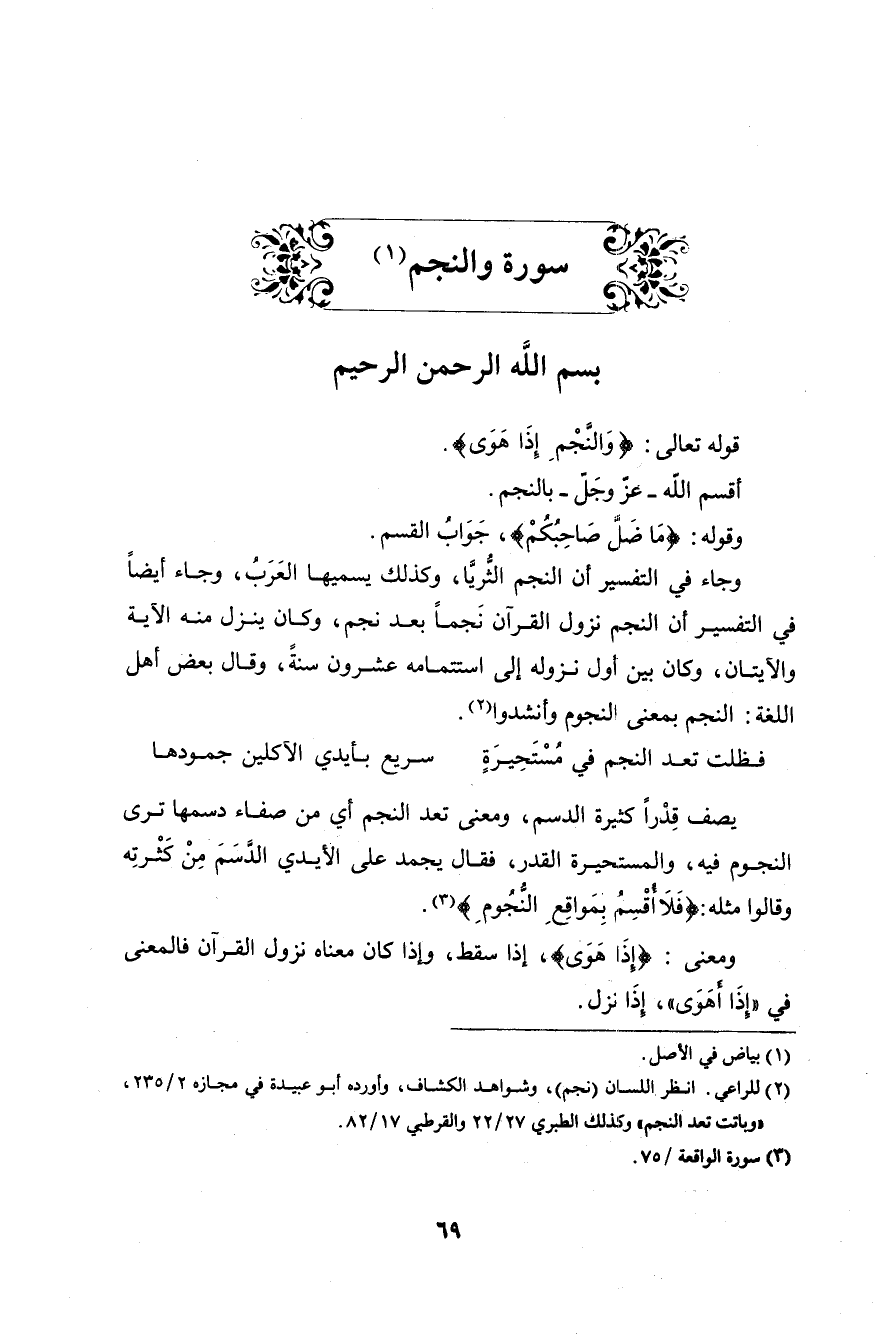 سورة والنجم(١)
بسم اللَّه الرحمن الرحيم
قوله تعالى : ﴿وَالنَّجْمِ إِذَا هَوَى﴾ .
أقسم اللّه ـ عزّ وجَلّ ـ بالنجم .
وقوله : ﴿مَا ضَلَّ صَاحِبُكُمْ﴾ ، جَوَابُ القسم .
وجاء في التفسير أن النجم الثُّريَّا، وكذلك يسميهـا العَرَبُ، وجـاء أيضاً
في التفسيـر أن النجم نزول القـرآن نَجمـاً بعـد نجم، وكـان ينـزل منـه الآيـة
والآيتـان، وكان بين أول نـزوله إلى استتمـامه عشـرون سنةً، وقـال بعض أهل
اللغة : النجم بمعنى النجوم وأنشدوا(٢) .
فـظلت تعـد النجم في مُسْتَحِيـرَةٍ سـريع بـأيدي الآكلين جمـودهـا
يصف قِدْراً كثيرة الدسم، ومعنى تعد النجم أي من صفـاء دسمهـا تـرى
النجـوم فيه، والمـستحيـرة القدر، فقـال يجمد على الأيـدي الدَّسَمَ مِنْ كَثْـرتِه
وقالوا مثله :﴿فَلَا أُقْسِمُ بِمَواقِعِ النُّجُومِ﴾(٣) .
ومعنى : ﴿إِذَا هَوَى﴾، إذا سقط، وإذا كان معناه نزول القـرآن فالمعنى
في «إِذَا أَهَوَى»، إِذَا نزل .
(١) بياض في الأصل .
(٢) للراعي . انـظر اللسـان (نجم)، وشـواهـد الكشـاف، وأورده أبـو عبيـدة في مجـازه ٢/ ٢٣٥ ،
«وباتت تعد النجم» وكذلك الطبري ٢٧/ ٢٢ والقرطبي ١٧/ ٨٢ .
(٣) سورة الواقعة / ٧٥ .
٦٩